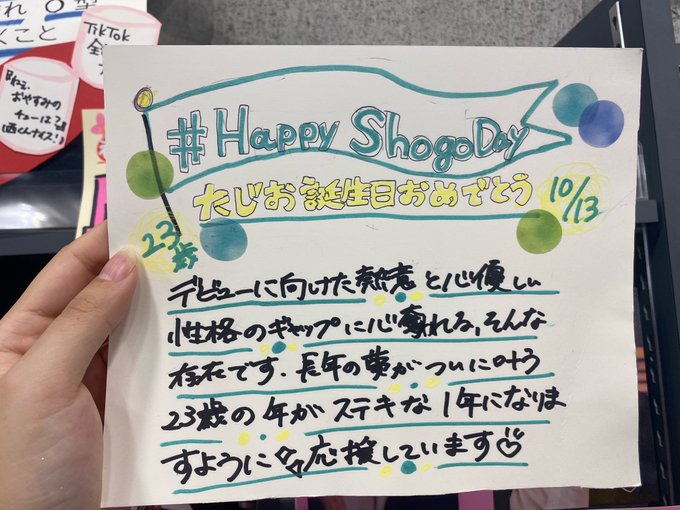 れ O型
くこと
TikTok
全
「ねぇ、
おやすみの
チューは？」
#Happy ShogoDay
たじお誕生日おめでとう
10/13
23歳
デビューに向けた熱意と心優しい
性格のギャップに心奪れる、そんな
存在です。長年の夢がついに叶う
23歳の年がステキな1年になりま
すように応援しています